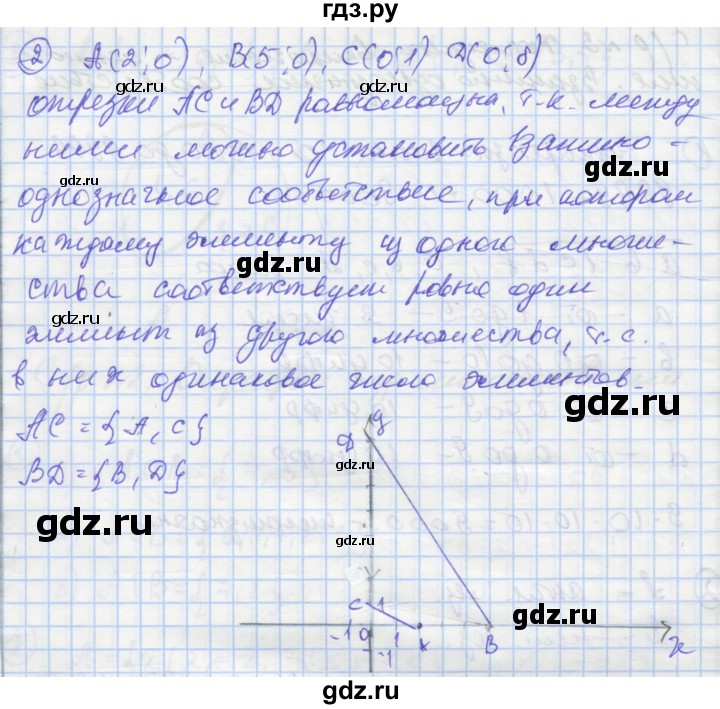 гдз.ру
② А(2;0), В(5;0), С(0;1) D(0;8)
отрезки АС и BD равномощны, т.к. между
ними можно установить взаимно-
однозначное соответствие, при котором
каждому элементу из одного множе-
ства соответствует ровно один
элемент из другого множества, т.е.
в них одинаковое число элементов.
АС = {А, С}
BD = {B, D}
gdz.ru
gdz.ru
gdz.ru
gdz.ru
gdz.ru
gdz.ru
gdz.ru
gdz.ru
gdz.ru
gdz.ru
gdz.ru
D y
C 1
-1 0 1 В x
-1